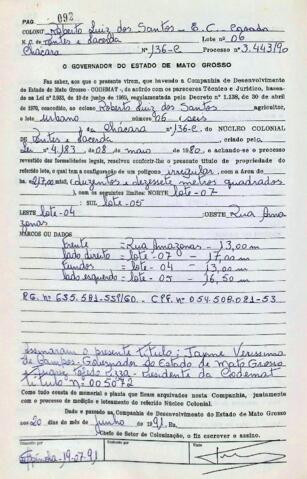 PAG. 092
COLONO Roberto Luiz dos Santos - E.C. Casado
N.C. de Pontes e Lacerda Lote nº 06
Chácara Nº 136-C Processo nº 3.443/90
O GOVERNADOR DO ESTADO DE MATO GROSSO
Faz saber, aos que o presente virem, que havendo a Companhia de Desenvolvimento
do Estado de Mato Grosso - CODEMAT -, de acordo com os pareceres Técnico e Jurídico, basea-
do na Lei nº 2.883, de 19 de junho de 1963, regulamentada pelo Decreto nº 1.138, de 30 de abril
de 1970, concedido, ao colono Roberto Luiz dos Santos agricultor,
o lote urbano nº 06 - seis
da Chácara nº 136-C do NÚCLEO COLONIAL
de Pontes e Lacerda criado pelo
Lei 4.183 de 08 de maio de 1980, e achando-se o processo
revestido das formalidades legais, resolveu conferir-lhe o presente título de propriedade do
referido lote, o qual tem a configuração de um polígono irregular, com a área de
217,00 m² (duzentos e dezessete metros quadrados
), com os seguintes limites: NORTE lote-07
SUL lote-05
LESTE lote-04 OESTE Rua Ama
zonas
MARCOS OU DADOS
frente = Rua Amazonas - 13,00 m
lado direito = lote - 07 - 17,00 m
fundos = lote - 04 - 13,00 m
lado esquerdo = lote - 05 - 16,50 m
RG. Nº 635.581-SSP/60. - CPF. nº 054.508.081-53
Assinaram o presente título: Jayme Verissimo
de Campos. Governador do Estado de Mato Grosso
Presidente da Codemat
título Nº 005072
Como tudo consta do memorial e planta que ficam arquivados nesta Companhia, juntamente
com o processo de medição e loteamento do referido Núcleo Colonial.
Dado e passado na Companhia de Desenvolvimento do Estado de Mato Grosso
aos 20 dias do mês de junho de 1991. Eu,
Chefe do Setor de Colonização, o fiz escrever e assino.
19-07-91